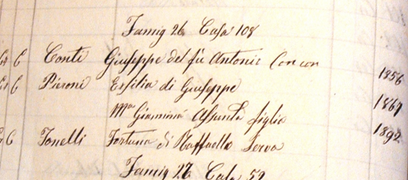 Famig 26 Casa 108
C Conti Giuseppe del fu Antonio con con 1856
C Pieroni Ersilia di Giuseppe 1867
Ma Giannina Assunta figlia 1892
C Tonelli Fortuna di Raffaello Serva
Famig 27 Casa 59